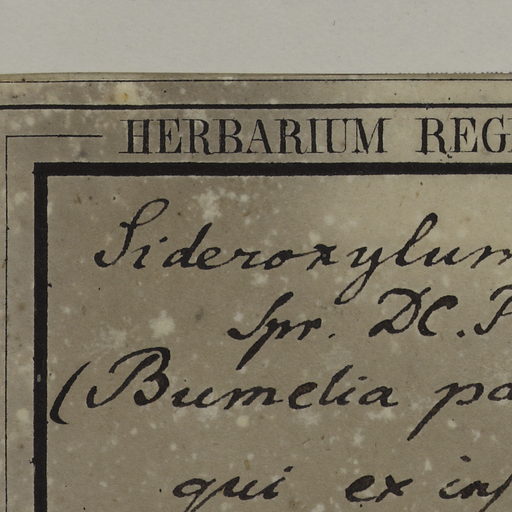 HERBARIUM REG
Sideroxylum
Spr. DC. P
(Bumelia pa
qui ex inf